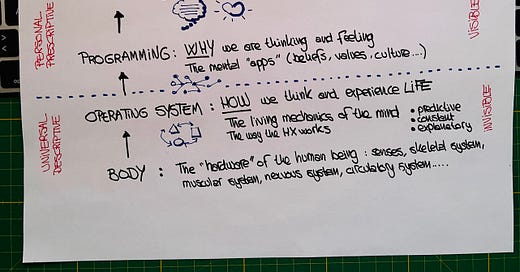 PERSONAL
PRESCRIPTIVE
VISIBLE
PROGRAMMING: WHY we are thinking and feeling
The mental "apps" (beliefs, values, culture...)
UNIVERSAL
DESCRIPTIVE
INVISIBLE
OPERATING SYSTEM: HOW we think and experience LIFE
The living mechanics of the mind
The way the HX works
• predictive
• constant
• explanatory
BODY: The "hardware" of the human being: senses, skeletal system,
muscular system, nervous system, circulatory system.....